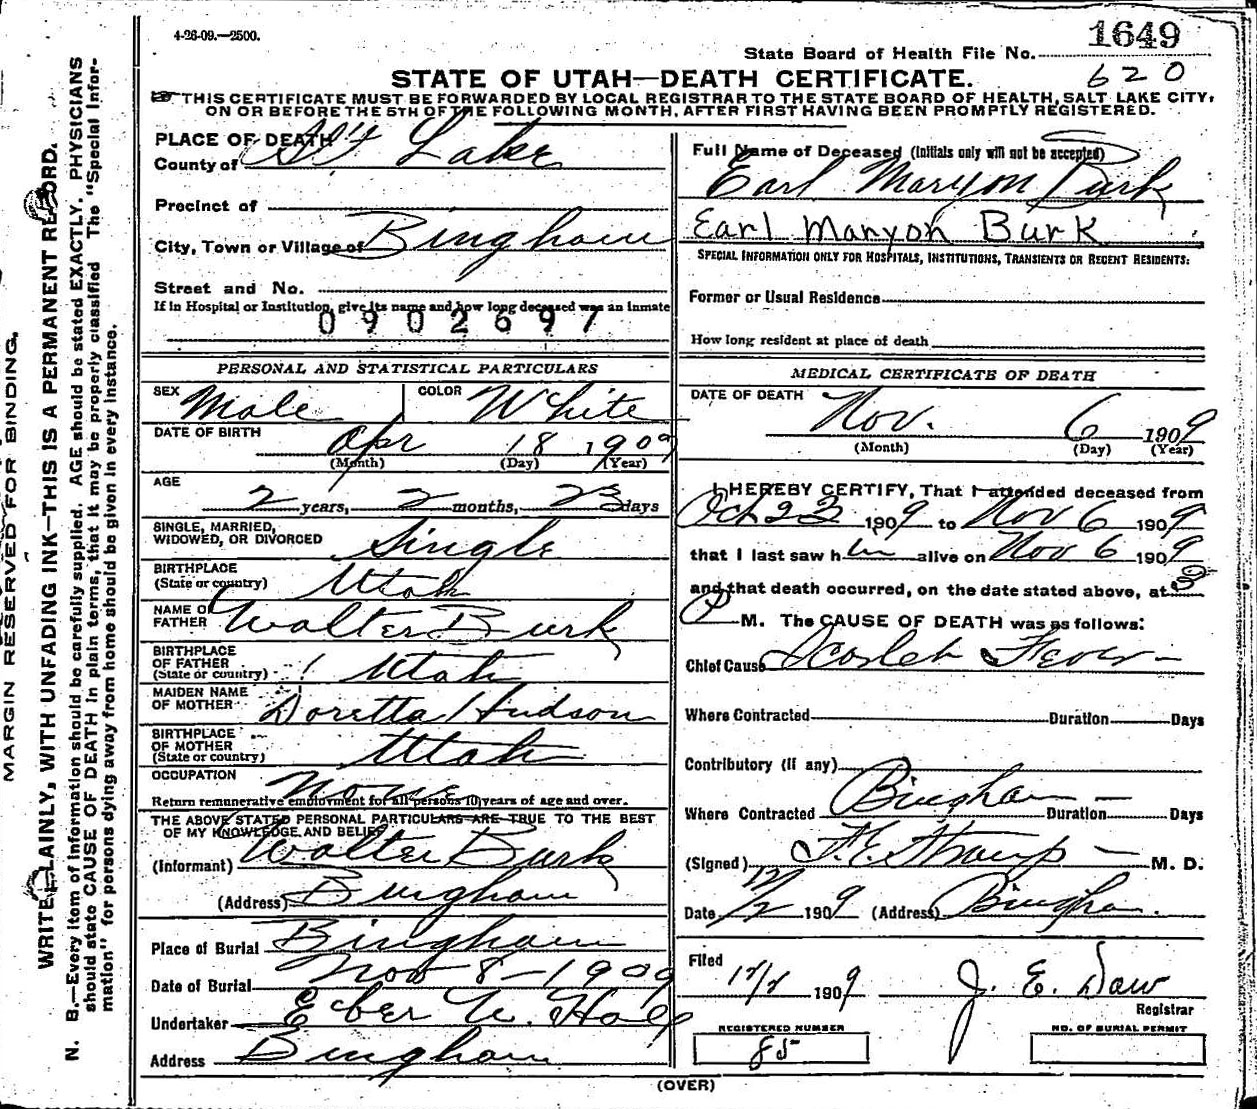 4-26-09.—2500.
1649
State Board of Health File No.
620
STATE OF UTAH—DEATH CERTIFICATE.
THIS CERTIFICATE MUST BE FORWARDED BY LOCAL REGISTRAR TO THE STATE BOARD OF HEALTH, SALT LAKE CITY,
ON OR BEFORE THE 5TH OF THE FOLLOWING MONTH, AFTER FIRST HAVING BEEN PROMPTLY REGISTERED.
MARGIN RESERVED FOR BINDING.
WRITE PLAINLY, WITH UNFADING INK—THIS IS A PERMANENT RECORD.
N. B.—Every item of information should be carefully supplied. AGE should be stated EXACTLY. PHYSICIANS
should state CAUSE OF DEATH in plain terms, that it may be properly classified The "Special Infor-
mation" for persons dying away from home should be given in every instance.
PLACE OF DEATH
County of Slt Lake
Precinct of
City, Town or Village of Bingham
Street and No.
If in Hospital or Institution, give its name and how long deceased was an inmate
0902697
PERSONAL AND STATISTICAL PARTICULARS
SEX Male COLOR White
DATE OF BIRTH Apr 18 1909
(Month) (Day) (Year)
AGE
2 years, 2 months, 23 days
SINGLE, MARRIED,
WIDOWED, OR DIVORCED Single
BIRTHPLACE
(State or country) Utah
NAME OF
FATHER Walter Burk
BIRTHPLACE
OF FATHER
(State or country) Utah
MAIDEN NAME
OF MOTHER Doretta Hudson
BIRTHPLACE
OF MOTHER
(State or country) Utah
OCCUPATION None
Return remunerative employment for all persons 10 years of age and over.
THE ABOVE STATED PERSONAL PARTICULARS ARE TRUE TO THE BEST
OF MY KNOWLEDGE AND BELIEF
(Informant) Walter Burk
(Address) Bingham
Place of Burial Bingham
Date of Burial Nov 8-1909
Undertaker Eber W. Hall
Address Bingham
Full Name of Deceased (Initials only will not be accepted)
Earl Maryon Burk
Earl Maryon Burk
SPECIAL INFORMATION ONLY FOR HOSPITALS, INSTITUTIONS, TRANSIENTS OR RECENT RESIDENTS:
Former or Usual Residence
How long resident at place of death
MEDICAL CERTIFICATE OF DEATH
DATE OF DEATH Nov. 6 1909
(Month) (Day) (Year)
I HEREBY CERTIFY, That I attended deceased from
Oct 23 1909 to Nov 6 1909
that I last saw him alive on Nov 6 1909
and that death occurred, on the date stated above, at 3
P M. The CAUSE OF DEATH was as follows:
Chief Cause Scarlet Fever
Where Contracted Duration Days
Contributory (if any)
Where Contracted Bingham Duration Days
(Signed) F. E. Straup M. D.
Date 12/2 1909 (Address) Bingham.
Filed 12/2 1909 J. E. Daw
Registrar
REGISTERED NUMBER
85
NO. OF BURIAL PERMIT
(OVER)